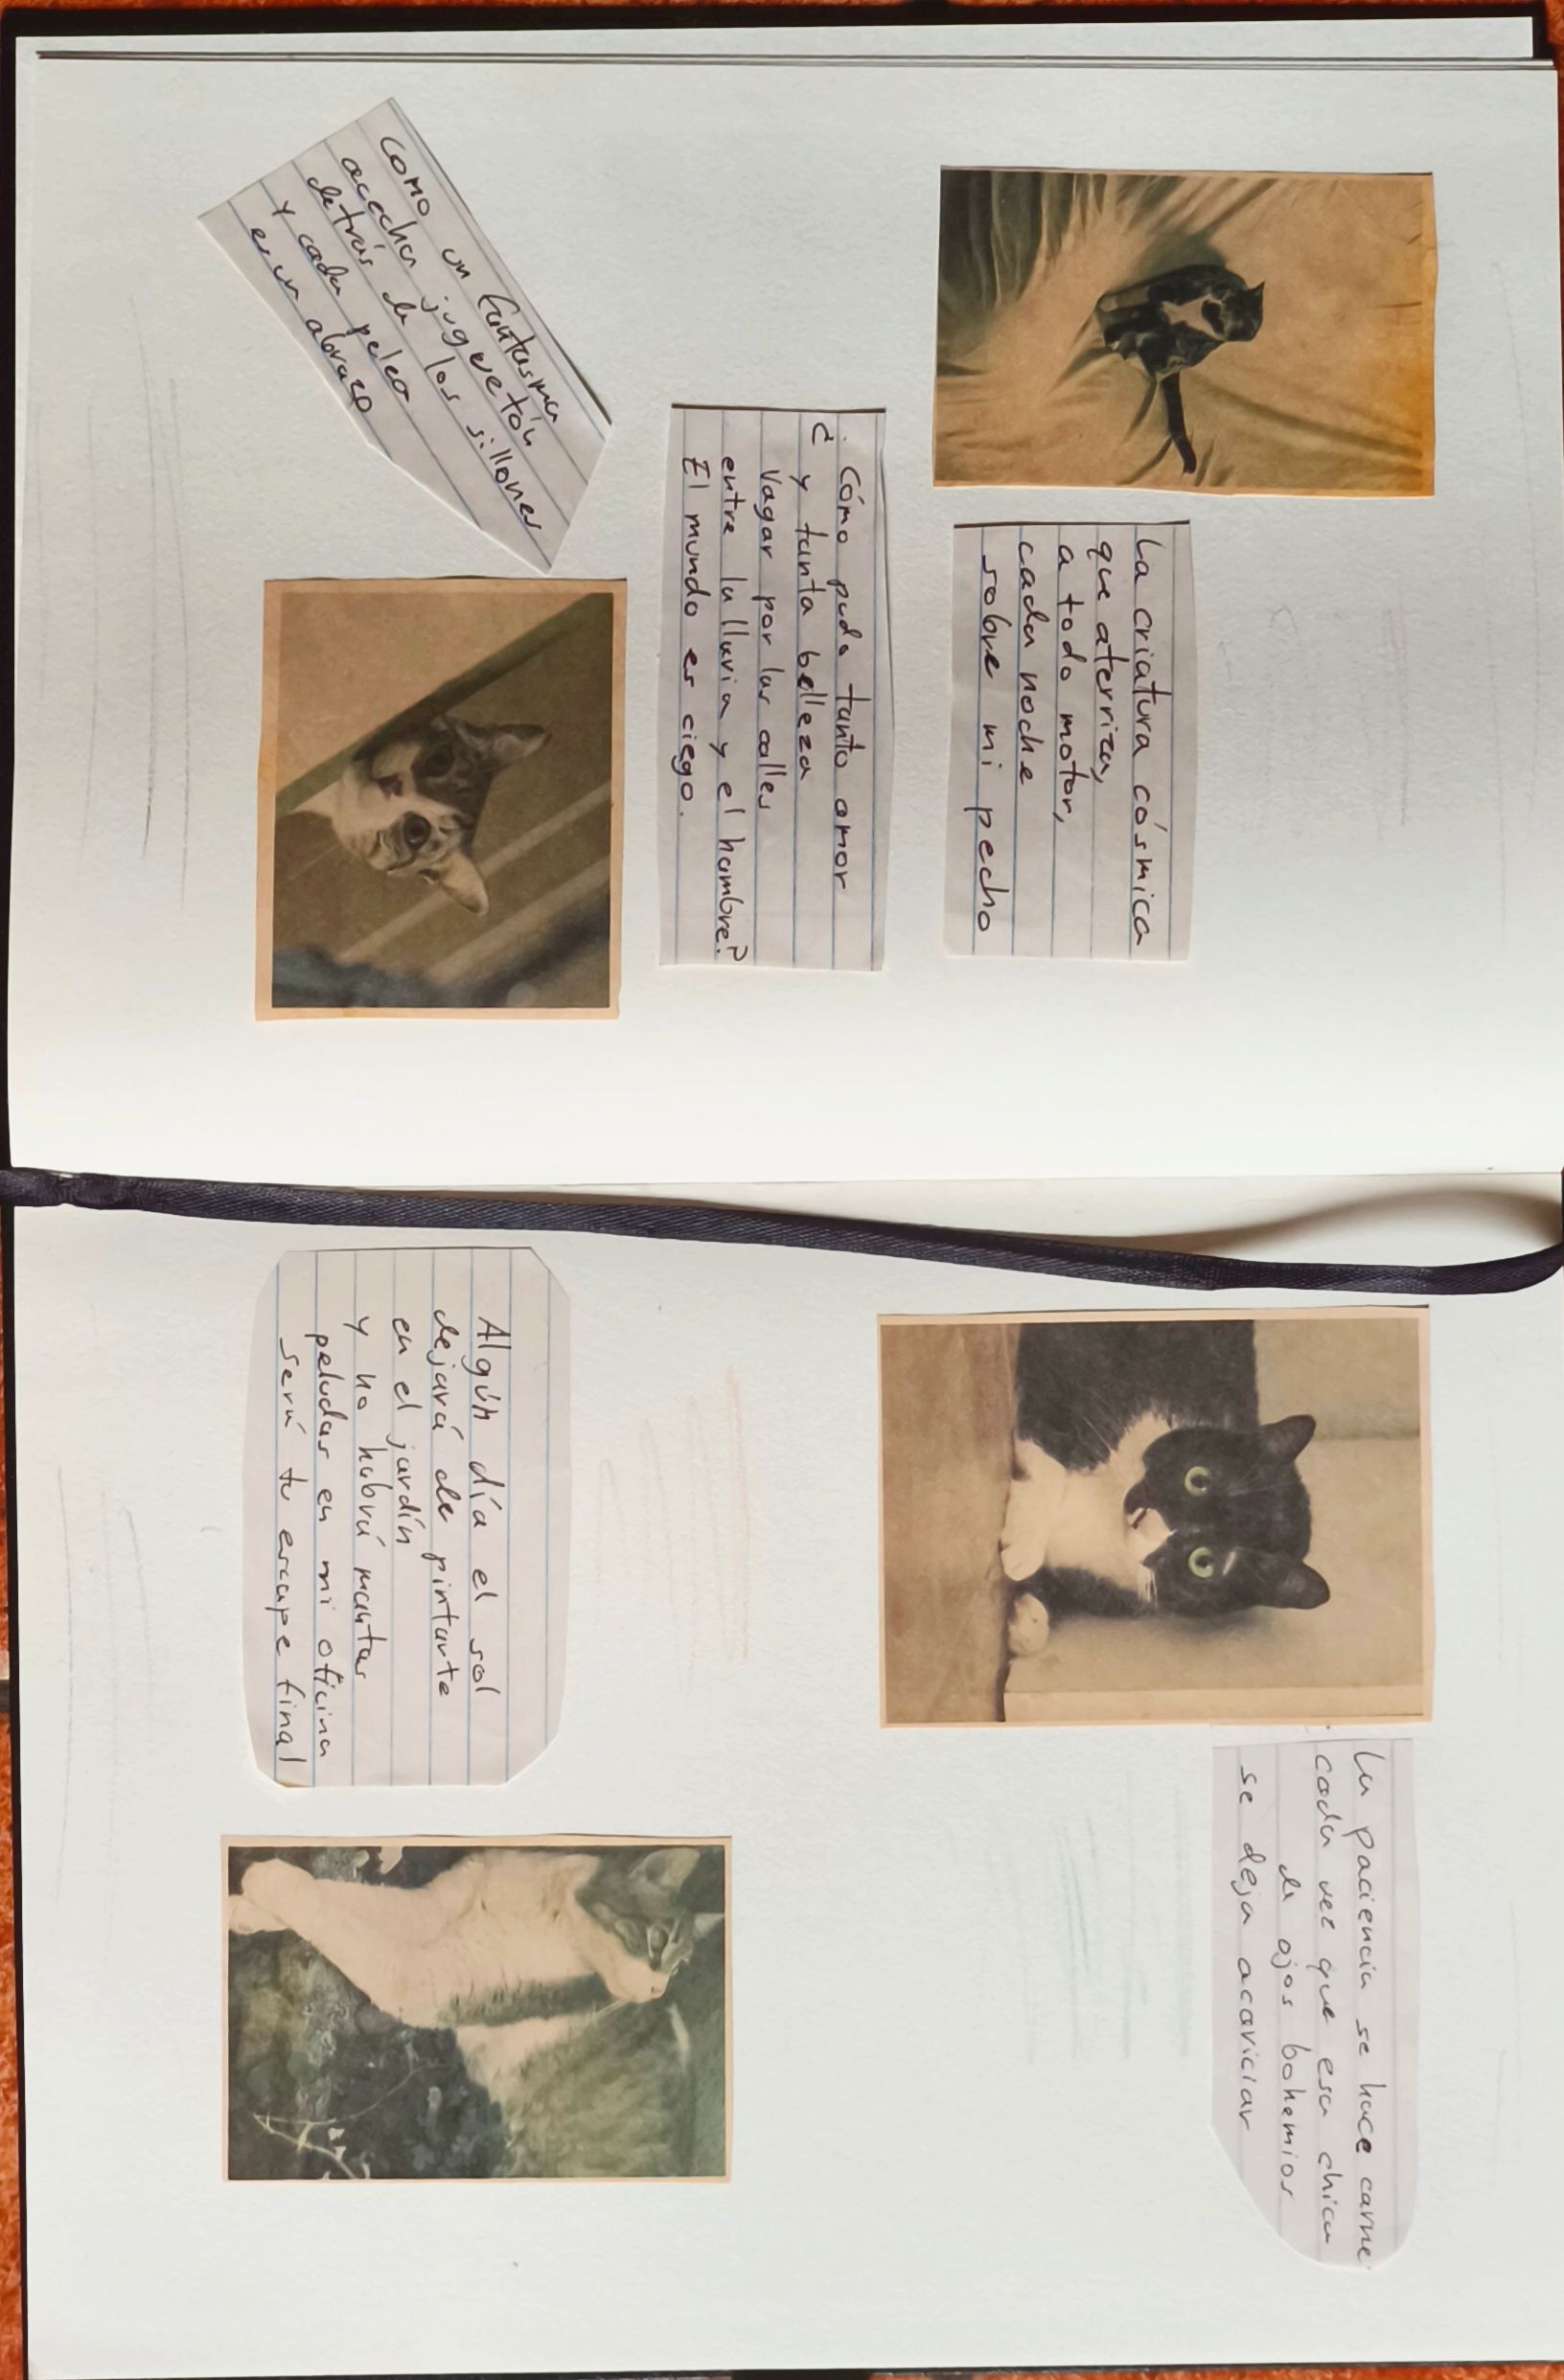 La criatura cósmica
que aterriza,
a todo motor,
cada noche
sobre mi pecho
¿Cómo pudo tanto amor
y tanta belleza
vagar por las calles
entre la lluvia y el hambre?
El mundo es ciego.
Como un fantasma
acecha juguetón
detrás de los sillones
y cada pelea
es un abrazo
La paciencia se hace carne
cada vez que esa chica
de ojos bohemios
se deja acariciar
Algún día el sol
dejará de pintarte
en el jardín
y no habrá mantas
peludas en mi oficina
será tu escape final